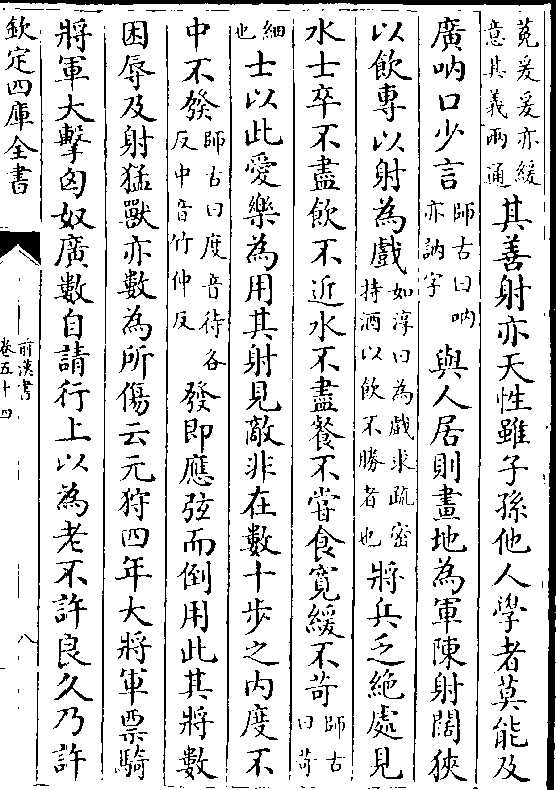 蒐爰爰亦緩
意其義兩通
其善射亦天性雖子孫他人學者莫能及
廣吶口少言
師古曰吶
亦訥字
與人居則畫地為軍陳射闊狹
以飲專以射為戲
如淳曰為戲求疏密
持酒以飲不勝者也
將兵乏絶處見
水士卒不盡飲不近水不盡餐不嘗食寛緩不苛
師古
曰苛
細
也
士以此愛樂為用其射見敵非在數十步之内度不
中不發
師古曰度音待各
反中音竹仲反
發即應弦而倒用此其將數
困辱及射猛獸亦數為所傷云元狩四年大將軍票騎
將軍大擊匈奴廣數自請行上以為老不許良久乃許
欽定四庫全書
前漢書
卷五十四
八